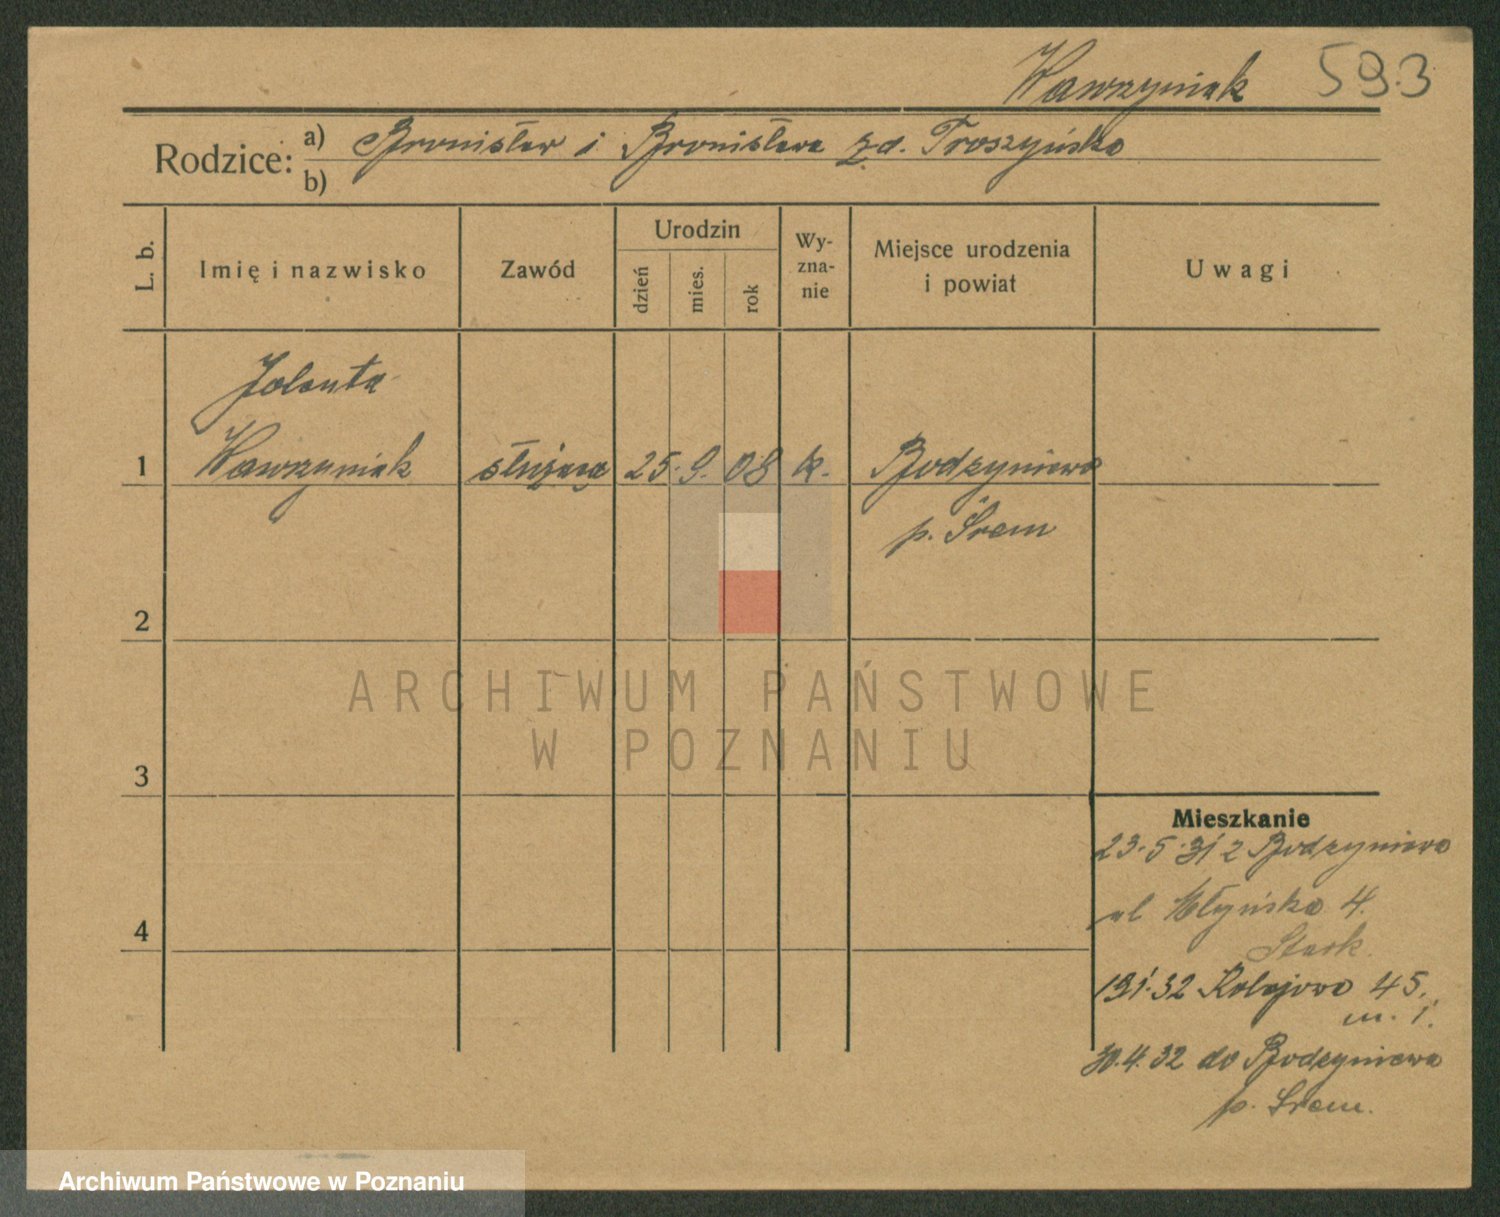 Wawrzyniak 593
Rodzice: a) Bronisław i Bronisława z d. Troszyńska
b)
L. b.
Imię i nazwisko
Zawód
Urodzin
dzień
mies.
rok
Wy-
zna-
nie
Miejsce urodzenia
i powiat
Uwagi
Jolanta
1 Wawrzyniak służąca 25. 9. 08 k. Bodzyniewo
p. Śrem
2
ARCHIWUM PAŃSTWOWE
W POZNANIU
3
Mieszkanie
23.5.31 z Bodzyniewa
4 ul Młyńska 4.
Stark.
Kolejowa 45.
m. 1.
30.4.32 do Bodzyniewa
p. Śrem.
Archiwum Państwowe w Poznaniu